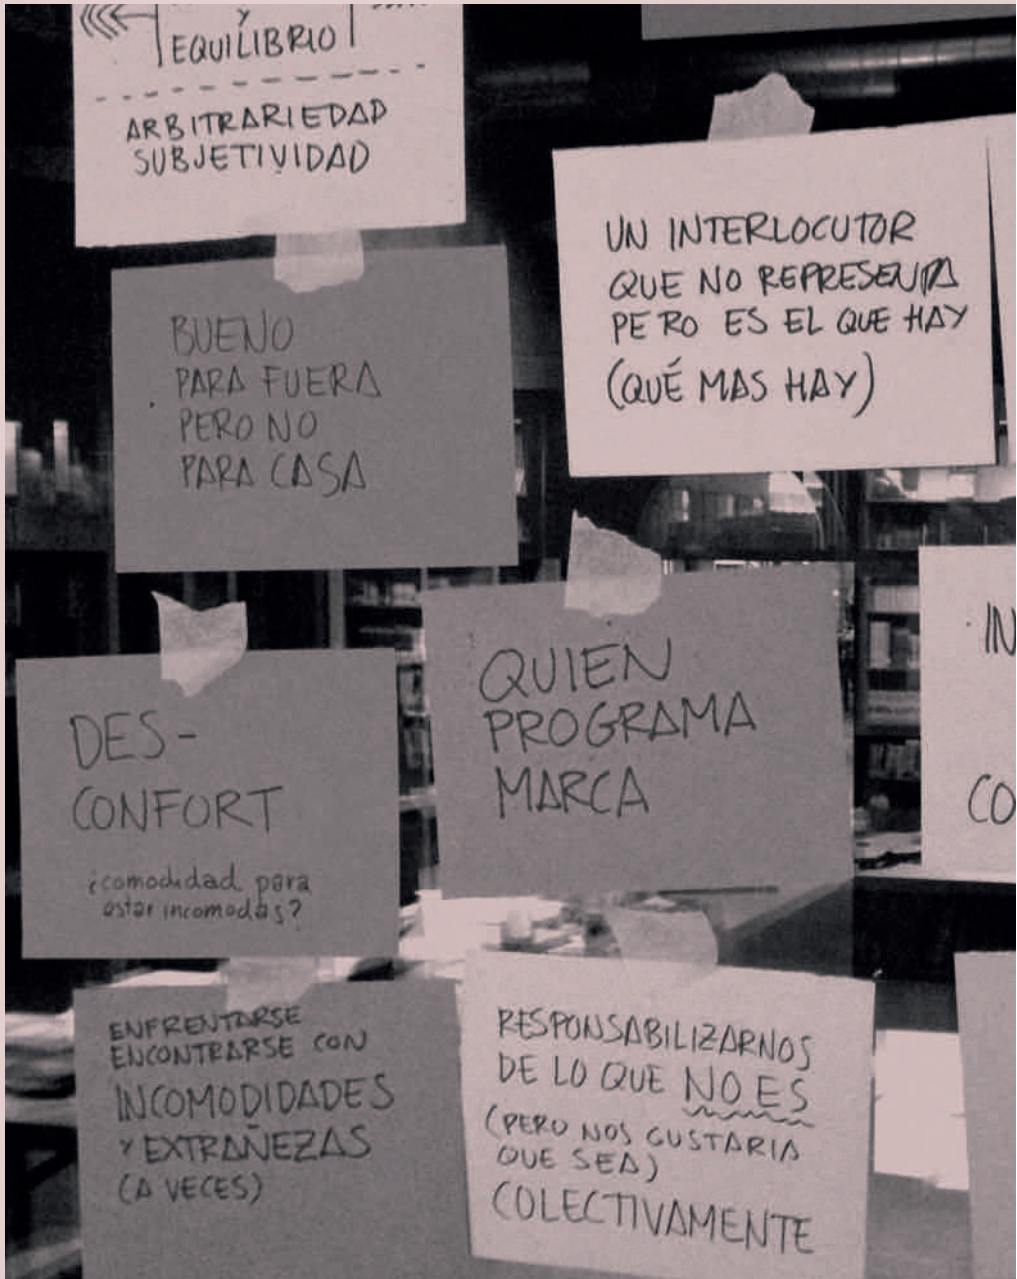 Y
EQUILIBRIO
ARBITRARIEDAD
SUBJETIVIDAD
UN INTERLOCUTOR
QUE NO REPRESENTA
PERO ES EL QUE HAY
(QUÉ MAS HAY)
BUENO
PARA FUERA
PERO NO
PARA CASA
DES-
CONFORT
¿comodidad para
estar incomodas?
QUIEN
PROGRAMA
MARCA
IN
CO
ENFRENTARSE
ENCONTRARSE CON
INCOMODIDADES
Y EXTRAÑEZAS
(A VECES)
RESPONSABILIZARNOS
DE LO QUE NO ES
(PERO NOS GUSTARIA
QUE SEA)
COLECTIVAMENTE